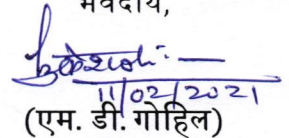 भवदीय,
11/02/2021
(एम. डी. गोहिल)